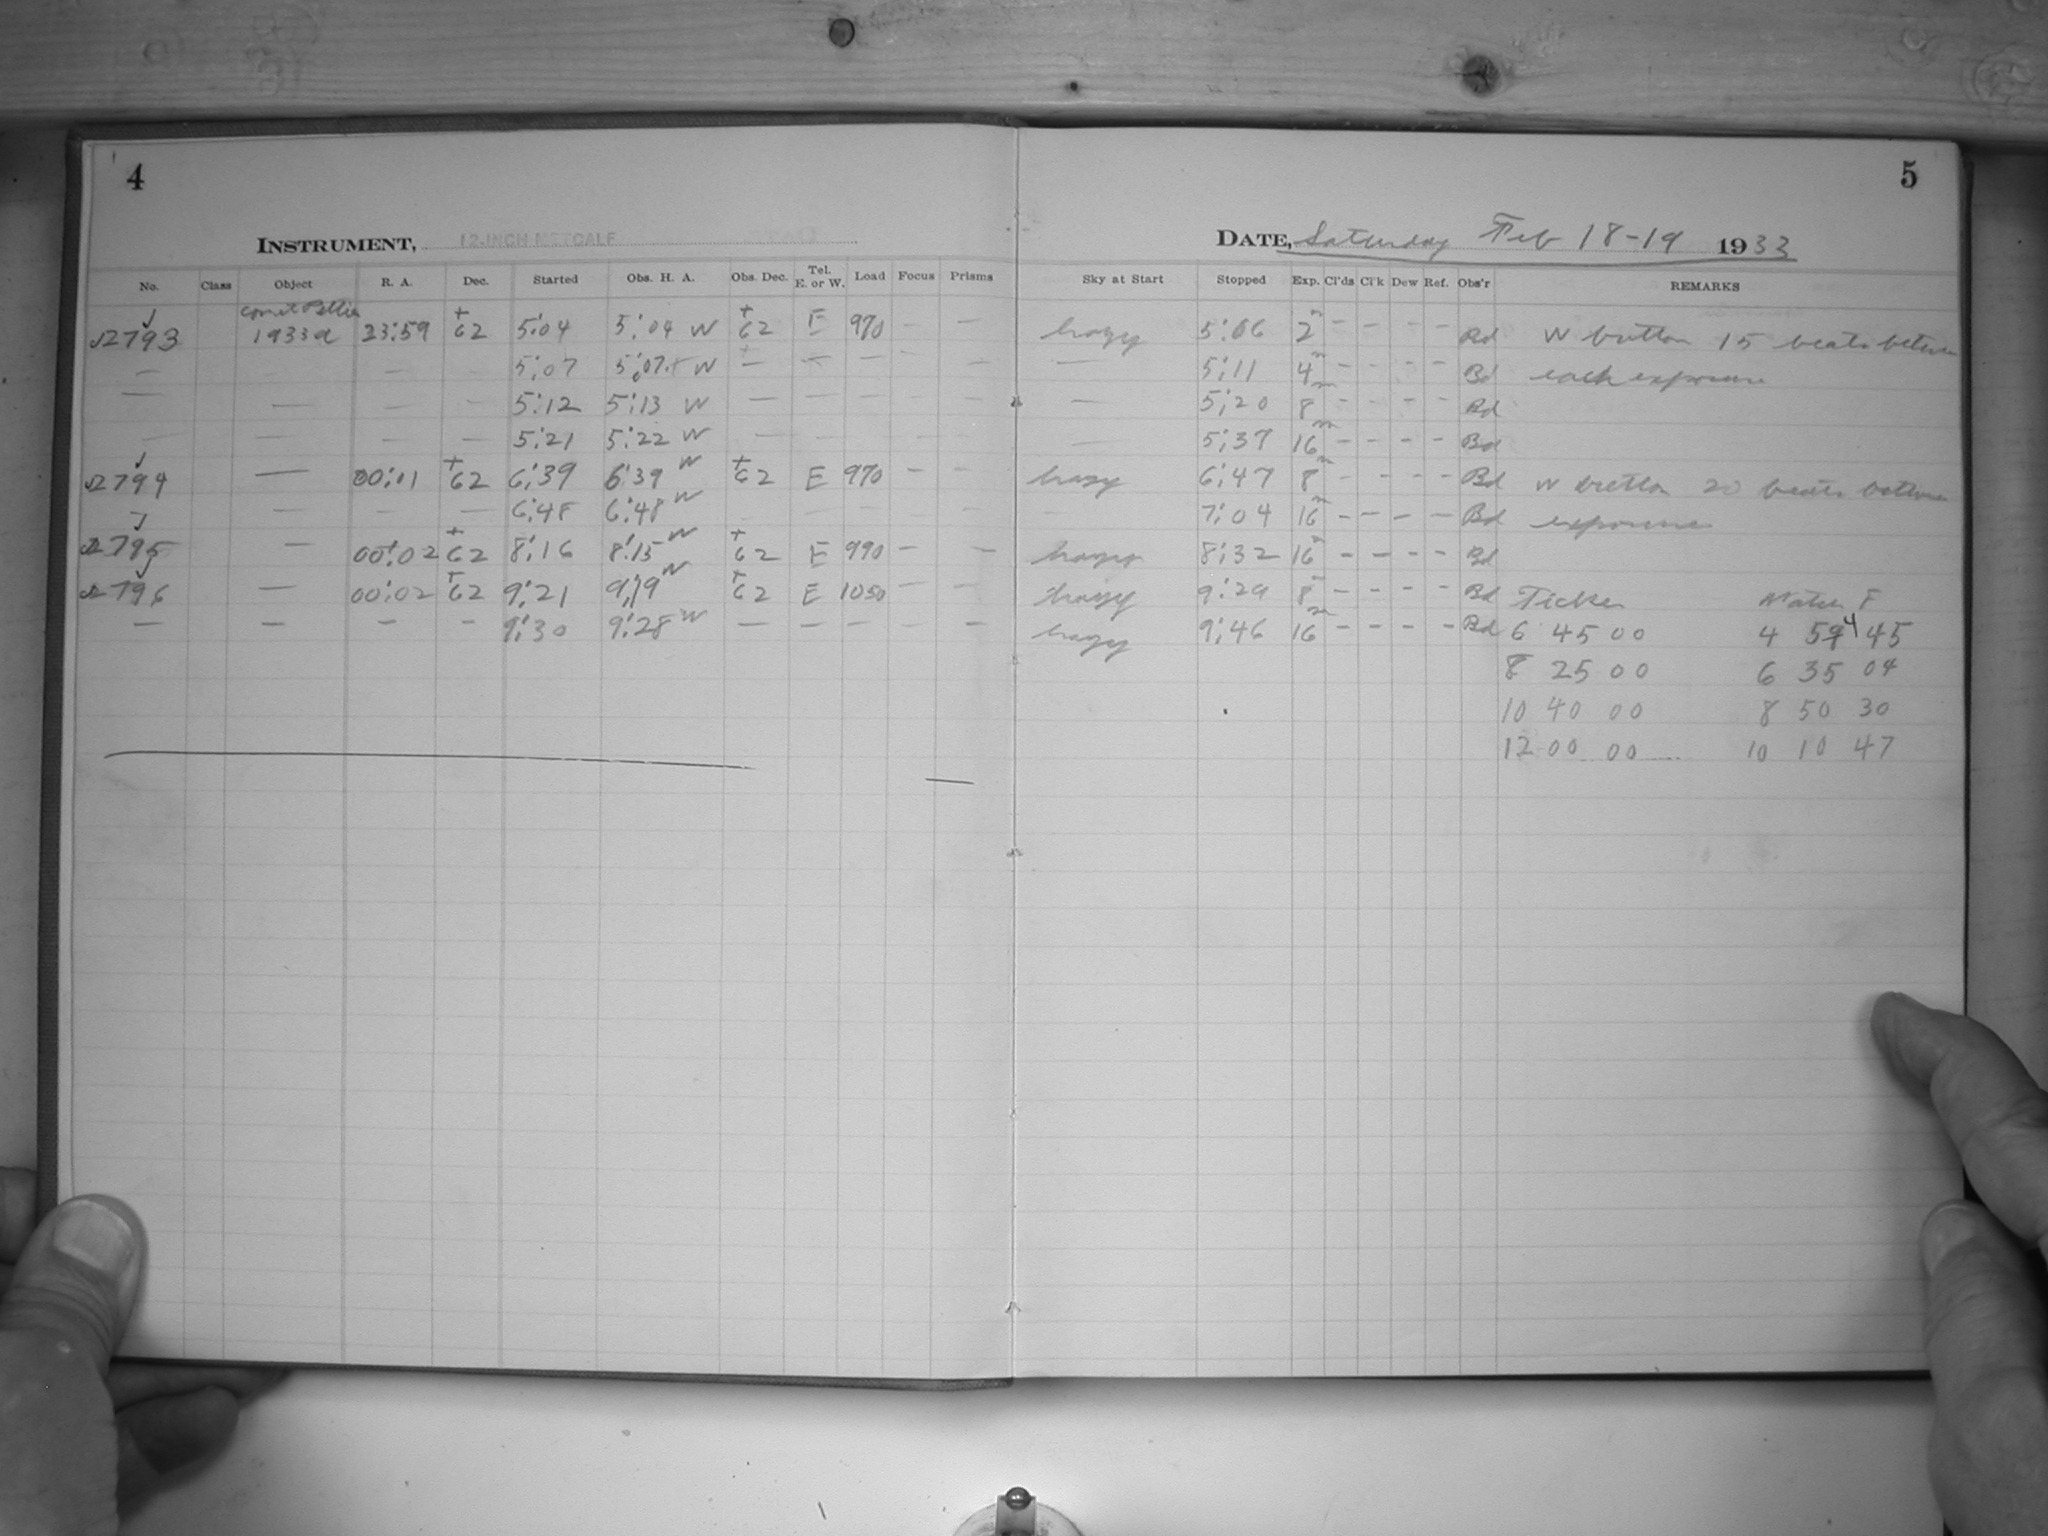 4
INSTRUMENT, 12-INCH METCALF
No. Class Object R. A. Dec. Started Obs. H. A. Obs. Dec. Tel. E. or W. Load Focus Prisms
Comet Peltier
2793 1933a 23:59 +62 5:04 5:04 W +62 E 970 — —
— 5:07 5:07+ W — — — —
— — — — 5:12 5:13 W — — — — —
— — — — 5:21 5:22 W — — — — —
2794 — 00:11 +62 6:39 6:39 W +62 E 970 — —
— — — — 6:48 6:48 W — — — — —
2795 — 00:02 +62 8:16 8:15 W +62 E 990 — —
2796 — 00:02 +62 9:21 9:19 W +62 E 1050 — —
— — — — 9:30 9:28 W — — — — —
5
DATE, Saturday Feb 18-19 1933
Sky at Start Stopped Exp. Cl'ds Cl'k Dew Ref. Obs'r REMARKS
hazy 5:06 2m — — — — Bd W button 15 beats between
— 5:11 4m — — — — Bd each exposure
— 5:20 8m — — — — Bd
— 5:37 16m — — — — Bd
hazy 6:47 8m — — — — Bd W button 20 beats between
— 7:04 16m — — — — Bd exposure
hazy 8:32 16m — — — — Bd
hazy 9:29 8m — — — — Bd Ticker F
hazy 9:46 16m — — — — Bd 6 45 00 4 54 45
8 25 00 6 35 04
10 40 00 8 50 30
12 00 00 10 10 47